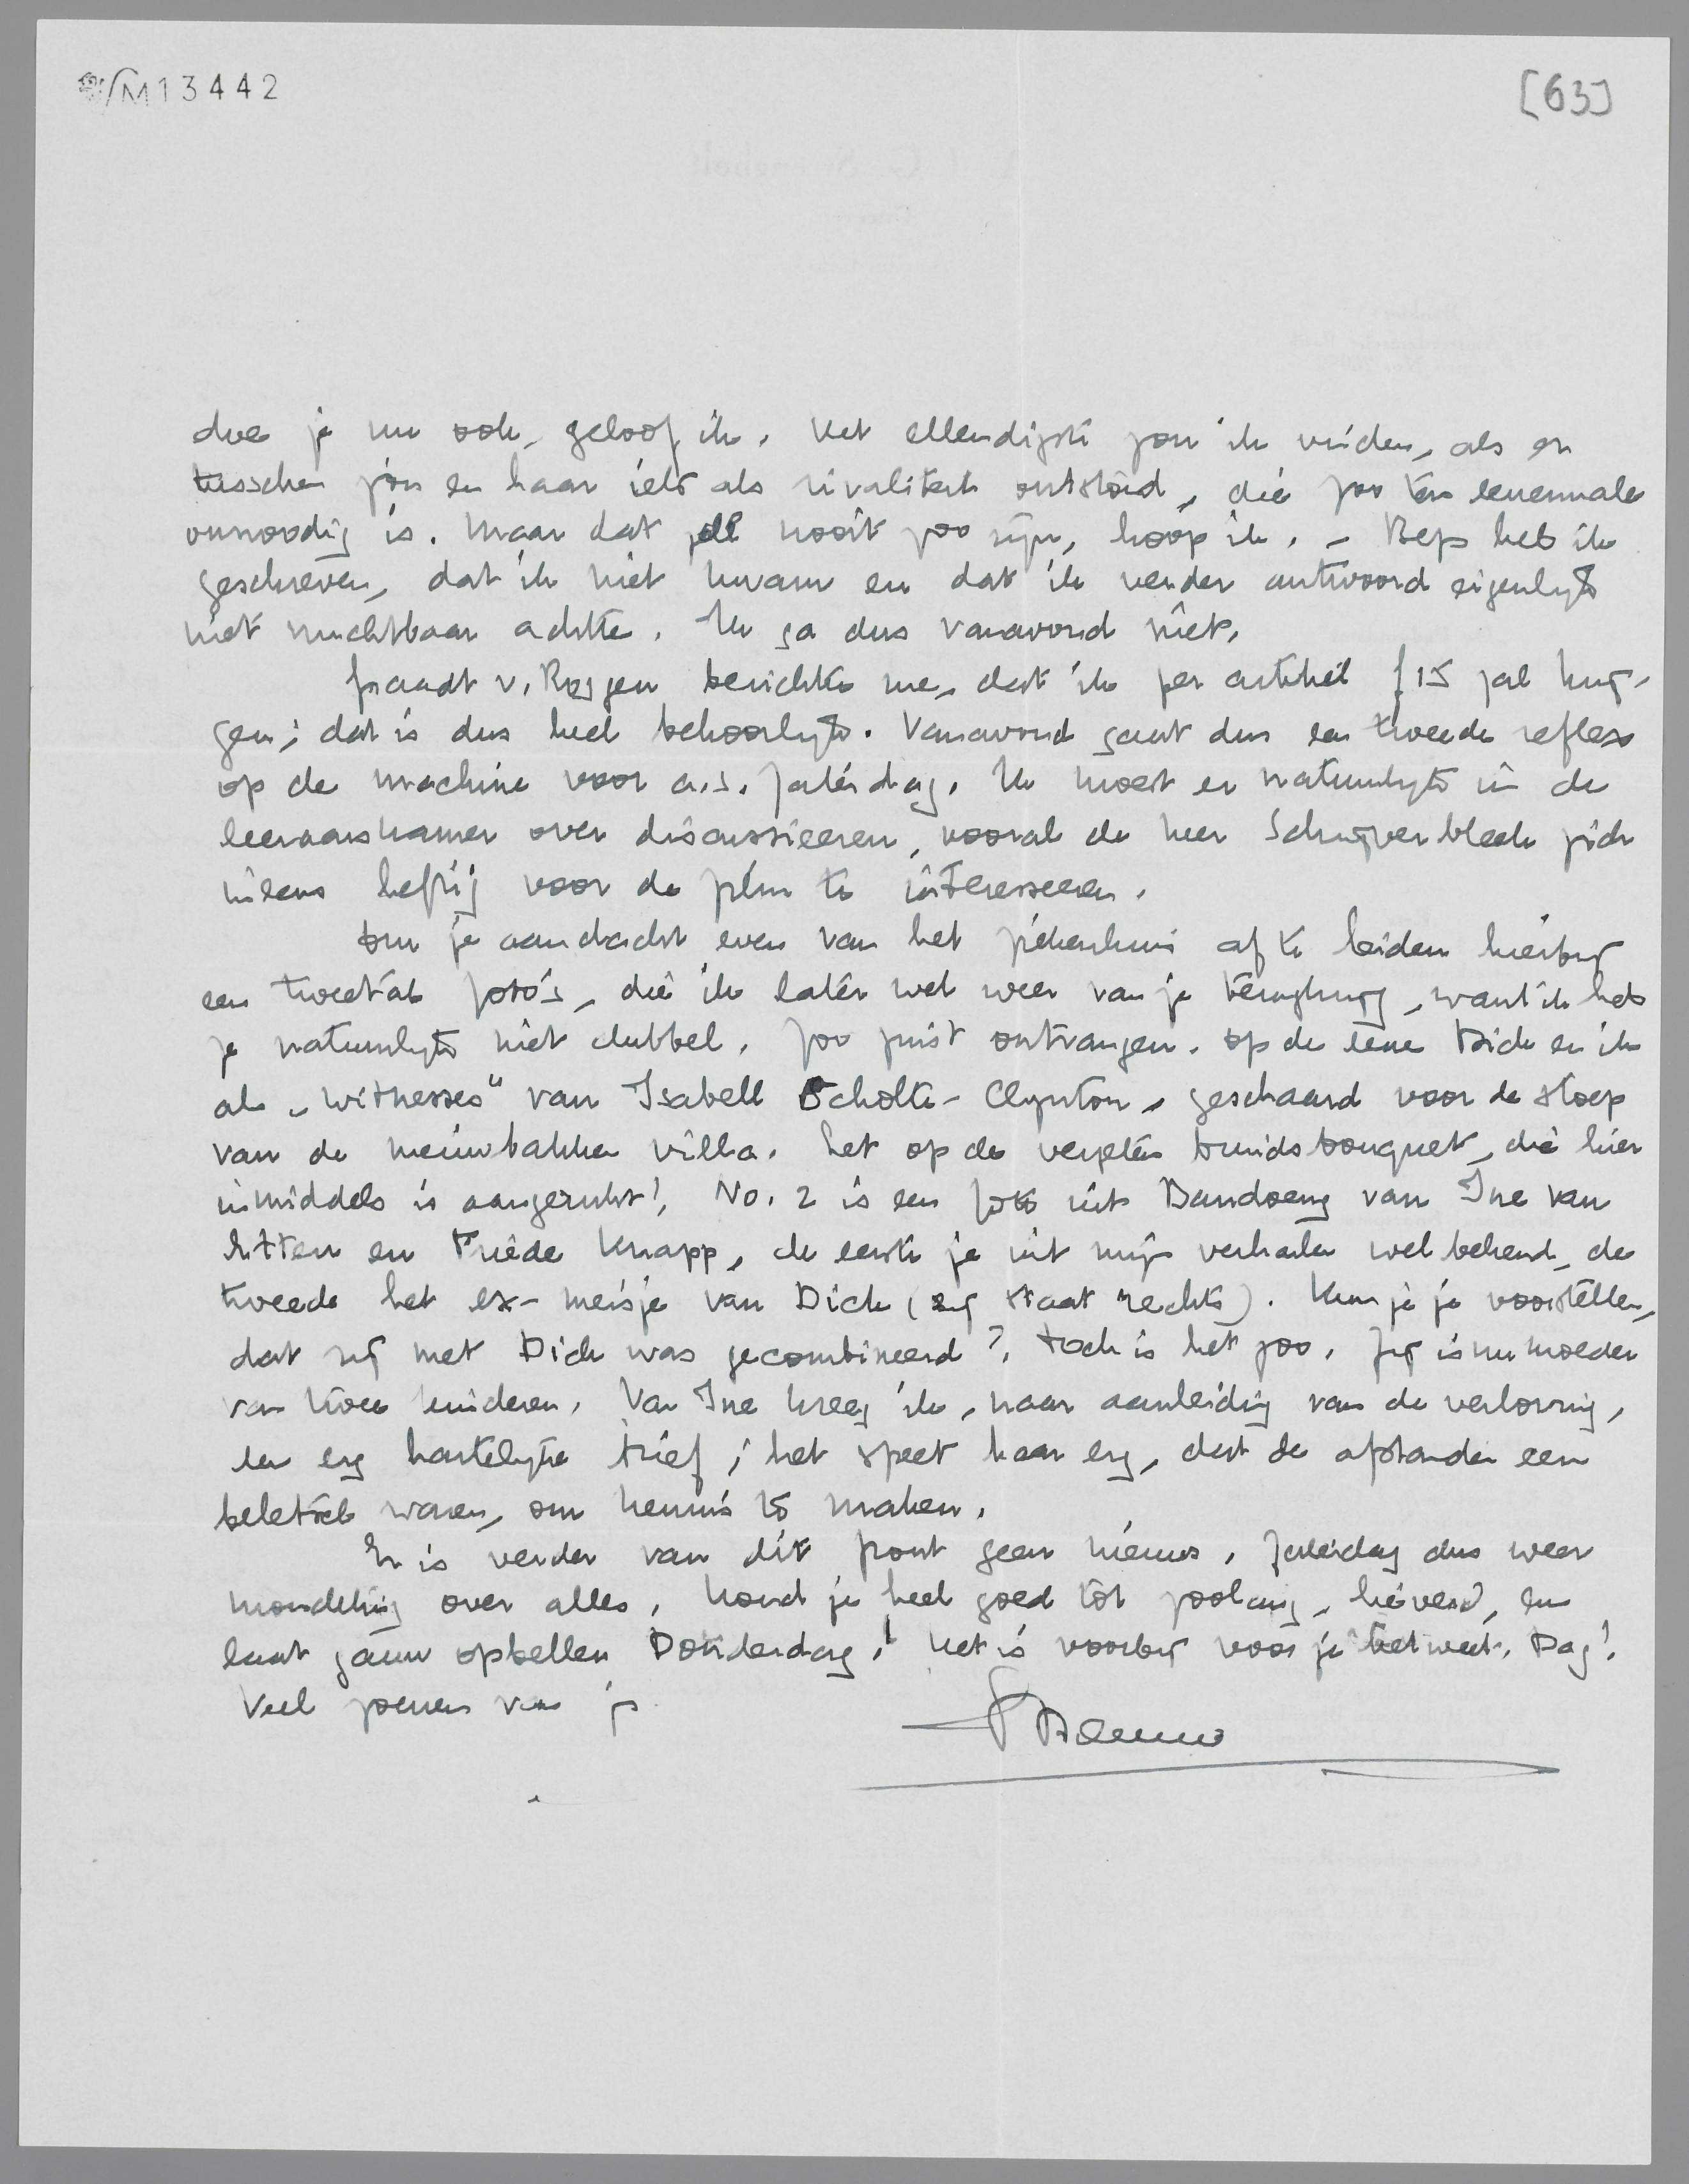 M13442
[63]
doe je nu ook, geloof ik. Het ellendigste zou ik vinden, als er
tusschen jou en haar iets als rivaliteit ontstond, die zoo ten eenenmale
onnoodig is. Maar dat zal nooit zoo zijn, hoop ik. – Bep heb ik
geschreven, dat ik niet kwam en dat ik verder antwoord eigenlijk
niet vruchtbaar achtte. Ik ga dus vanavond niet.
Graadt v. Roggen berichtte me, dat ik per artikel f 15 zal krij-
gen; dat is dus heel behoorlijk. Vanavond gaat dus een tweede reflex
op de machine voor a.s. Zaterdag. Ik moest er natuurlijk in de
leeraarskamer over discussieeren, vooral de heer Schrijver bleek zich
ineens heftig voor de film te interesseeren.
Om je aandacht even van het ziekenhuis af te leiden hierbij
een tweetal foto's, die ik later wel weer van je terugkrijg, want ik heb
ze natuurlijk niet dubbel. Zoo juist ontvangen. Op de eene Dick en ik
als „witnesses" van Isabell Scholte-Clynton, geschaard voor de stoep
van de nieuwbakken villa. Let op de vergeten bruidsbouquet, die hier
inmiddels is aangerukt! No. 2 is een foto uit Bandoeng van Ine van
Litten en Friede Knapp, de eerste je uit mijn verhalen wel bekend, de
tweede het ex-meisje van Dick (zij staat rechts). Kun je je voorstellen,
dat zij met Dick was gecombineerd? Toch is het zoo. Zij is nu moeder
van twee kinderen. Van Ine kreeg ik, naar aanleiding van de verloving,
een erg hartelijke brief; het speet haar erg, dat de afstanden een
beletsel waren, om kennis te maken.
Er is verder van dit front geen nieuws. Zaterdag dus weer
mondeling over alles. Houd je heel goed tot zoolang, lieverd, en
laat gauw opbellen Donderdag! Het is voorbij voor je het weet. Dag!
Veel zoenen van je
Menno